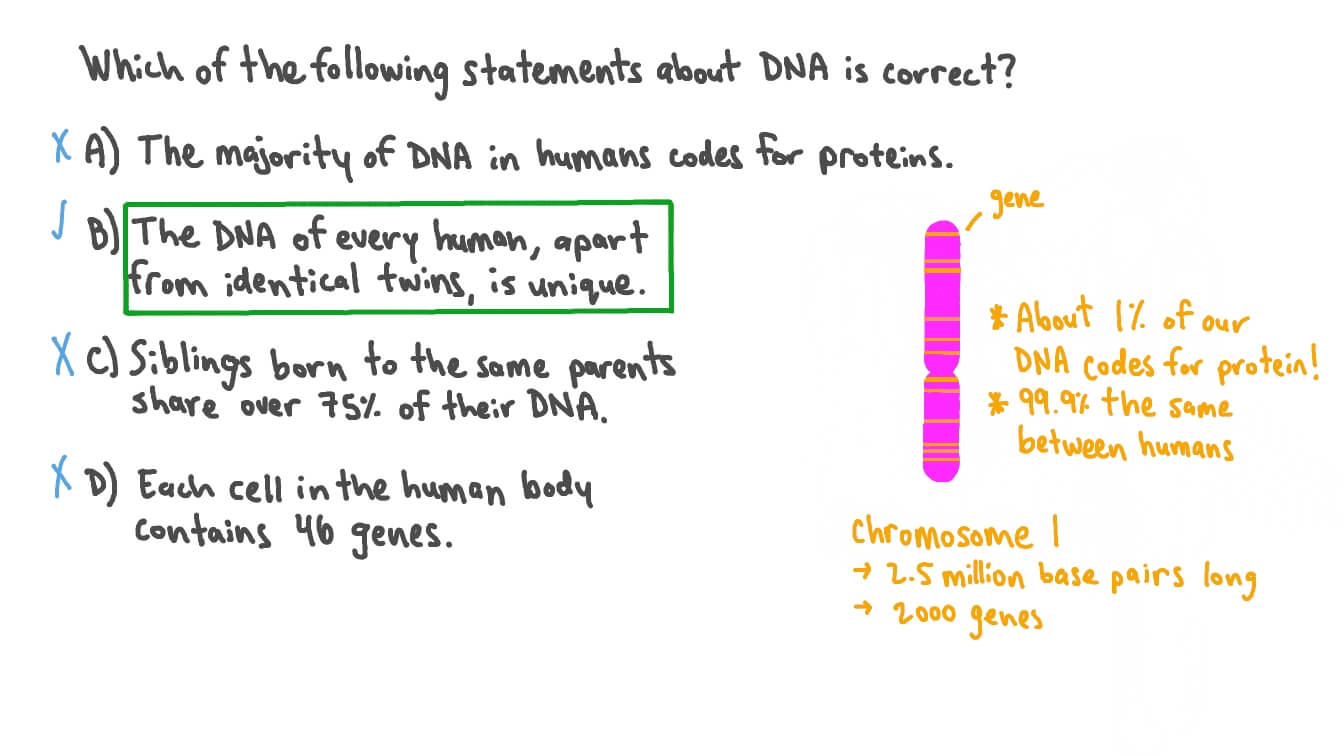 Which of the following statements about DNA is correct?
X A) The majority of DNA in humans codes for proteins.
✓ B) The DNA of every human, apart
from identical twins, is unique.
X C) Siblings born to the same parents
share over 75% of their DNA.
X D) Each cell in the human body
contains 46 genes.
gene
* About 1% of our
DNA codes for protein!
* 99.9% the same
between humans
Chromosome 1
→ 2.5 million base pairs long
→ 2000 genes